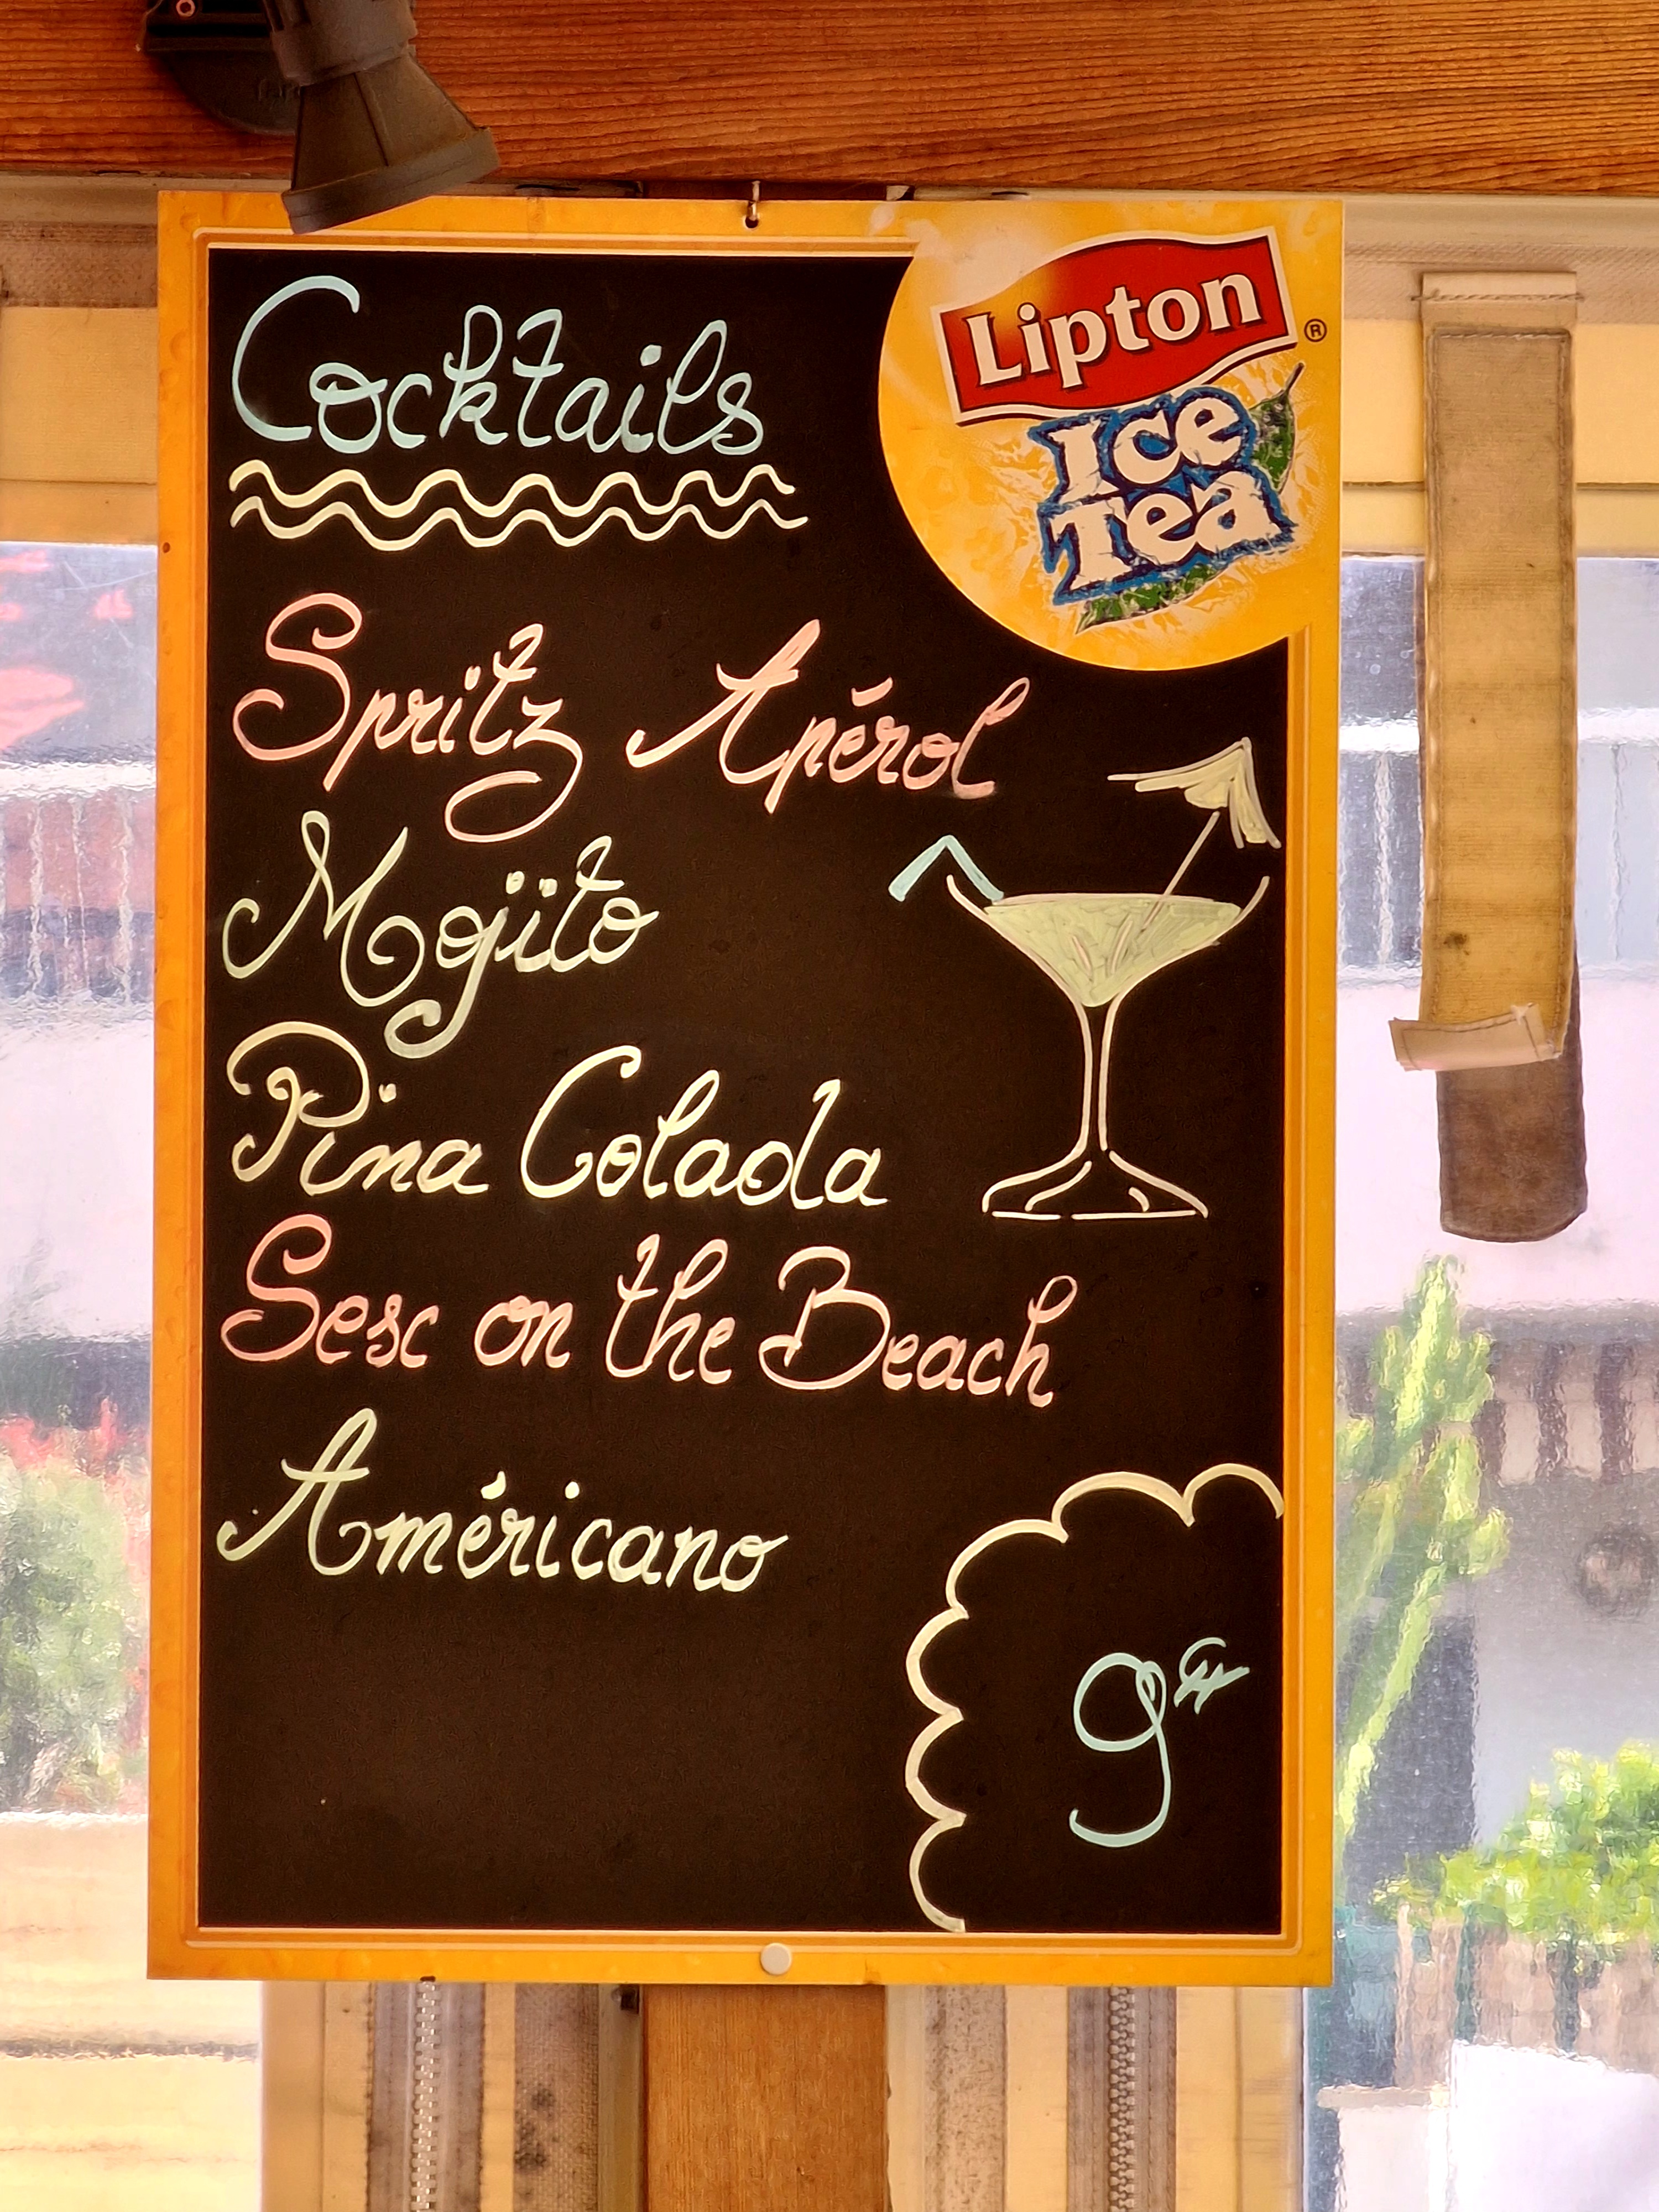 Cocktails
Lipton ®
Ice
Tea
Spritz Apérol
Mojito
Pina Colada
Sesc on the Beach
Américano
9€